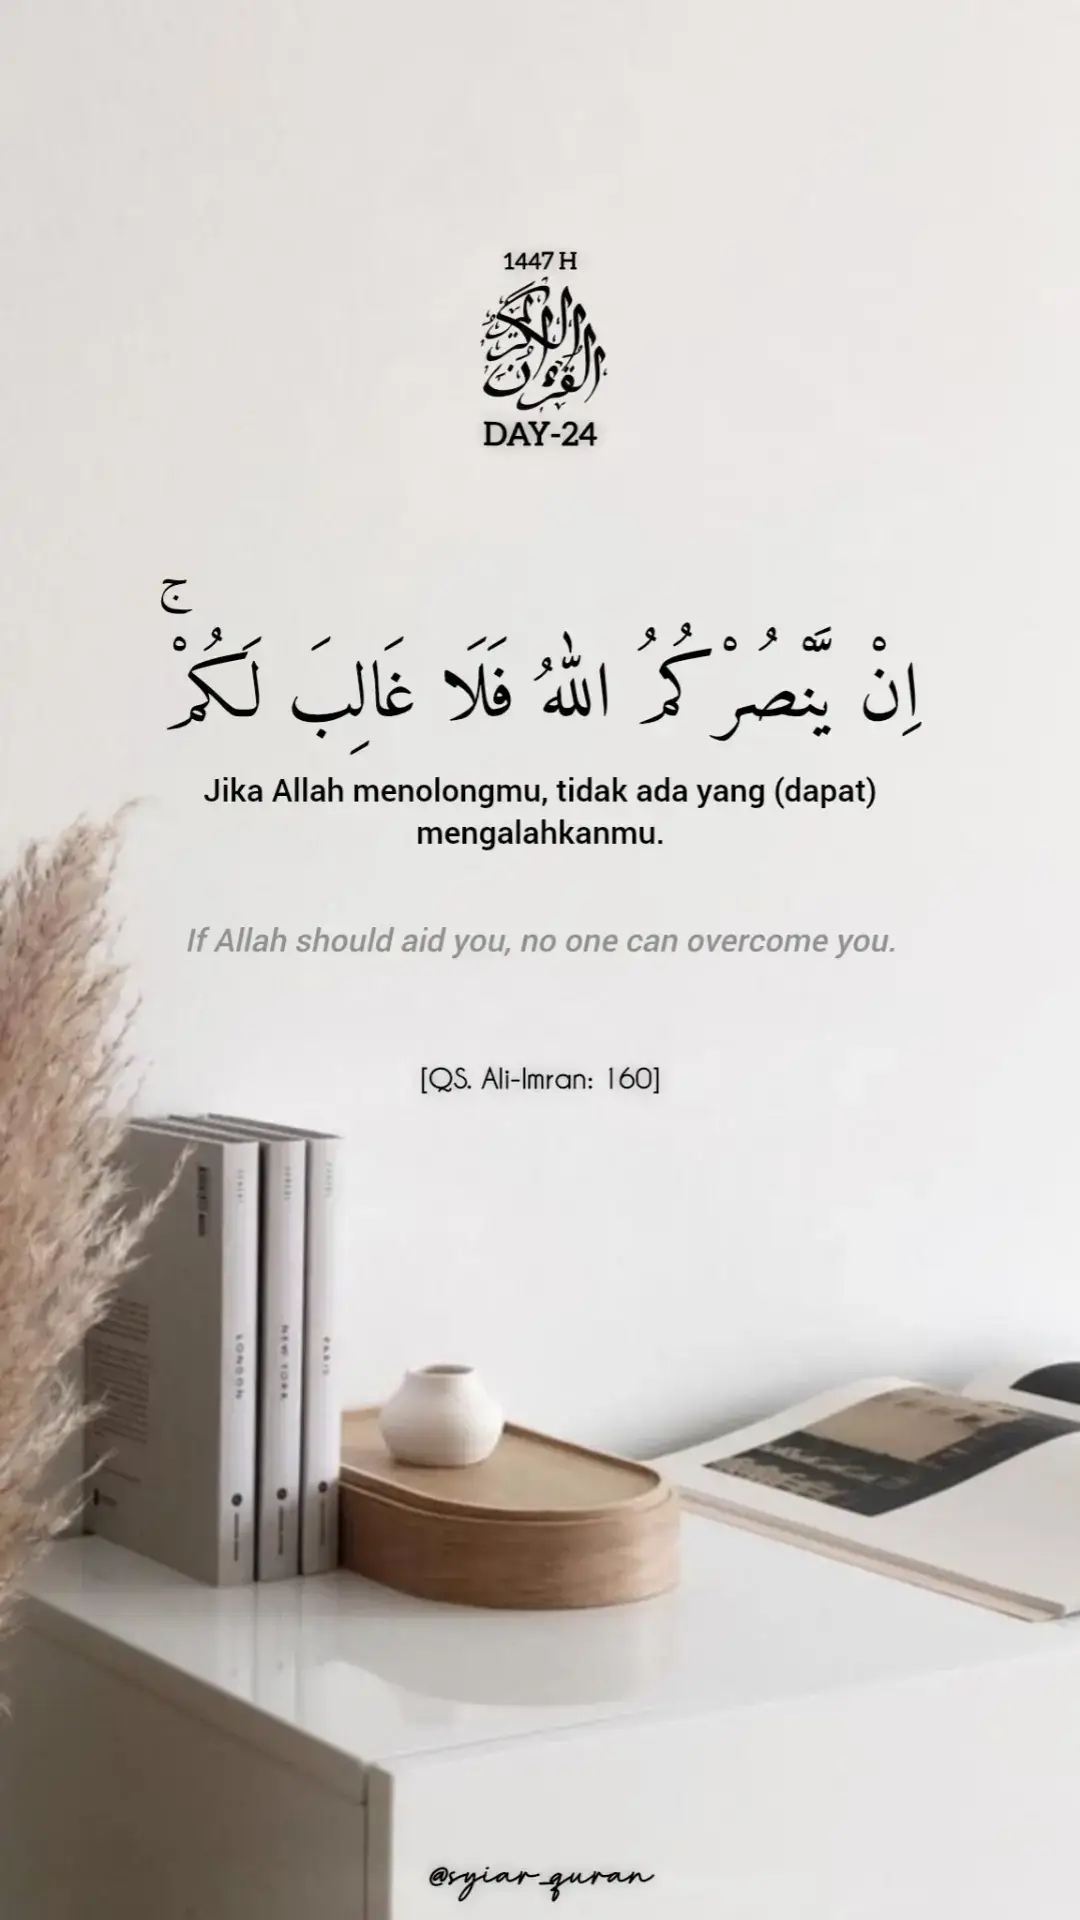 1447 H
القرآن الكريم
DAY-24
اِنْ يَّنْصُرْكُمُ اللّٰهُ فَلَا غَالِبَ لَكُمْۚ
Jika Allah menolongmu, tidak ada yang (dapat)
mengalahkanmu.
If Allah should aid you, no one can overcome you.
[QS. Ali-Imran: 160]
LONDON
NEW YORK
PARIS
@syiar_quran